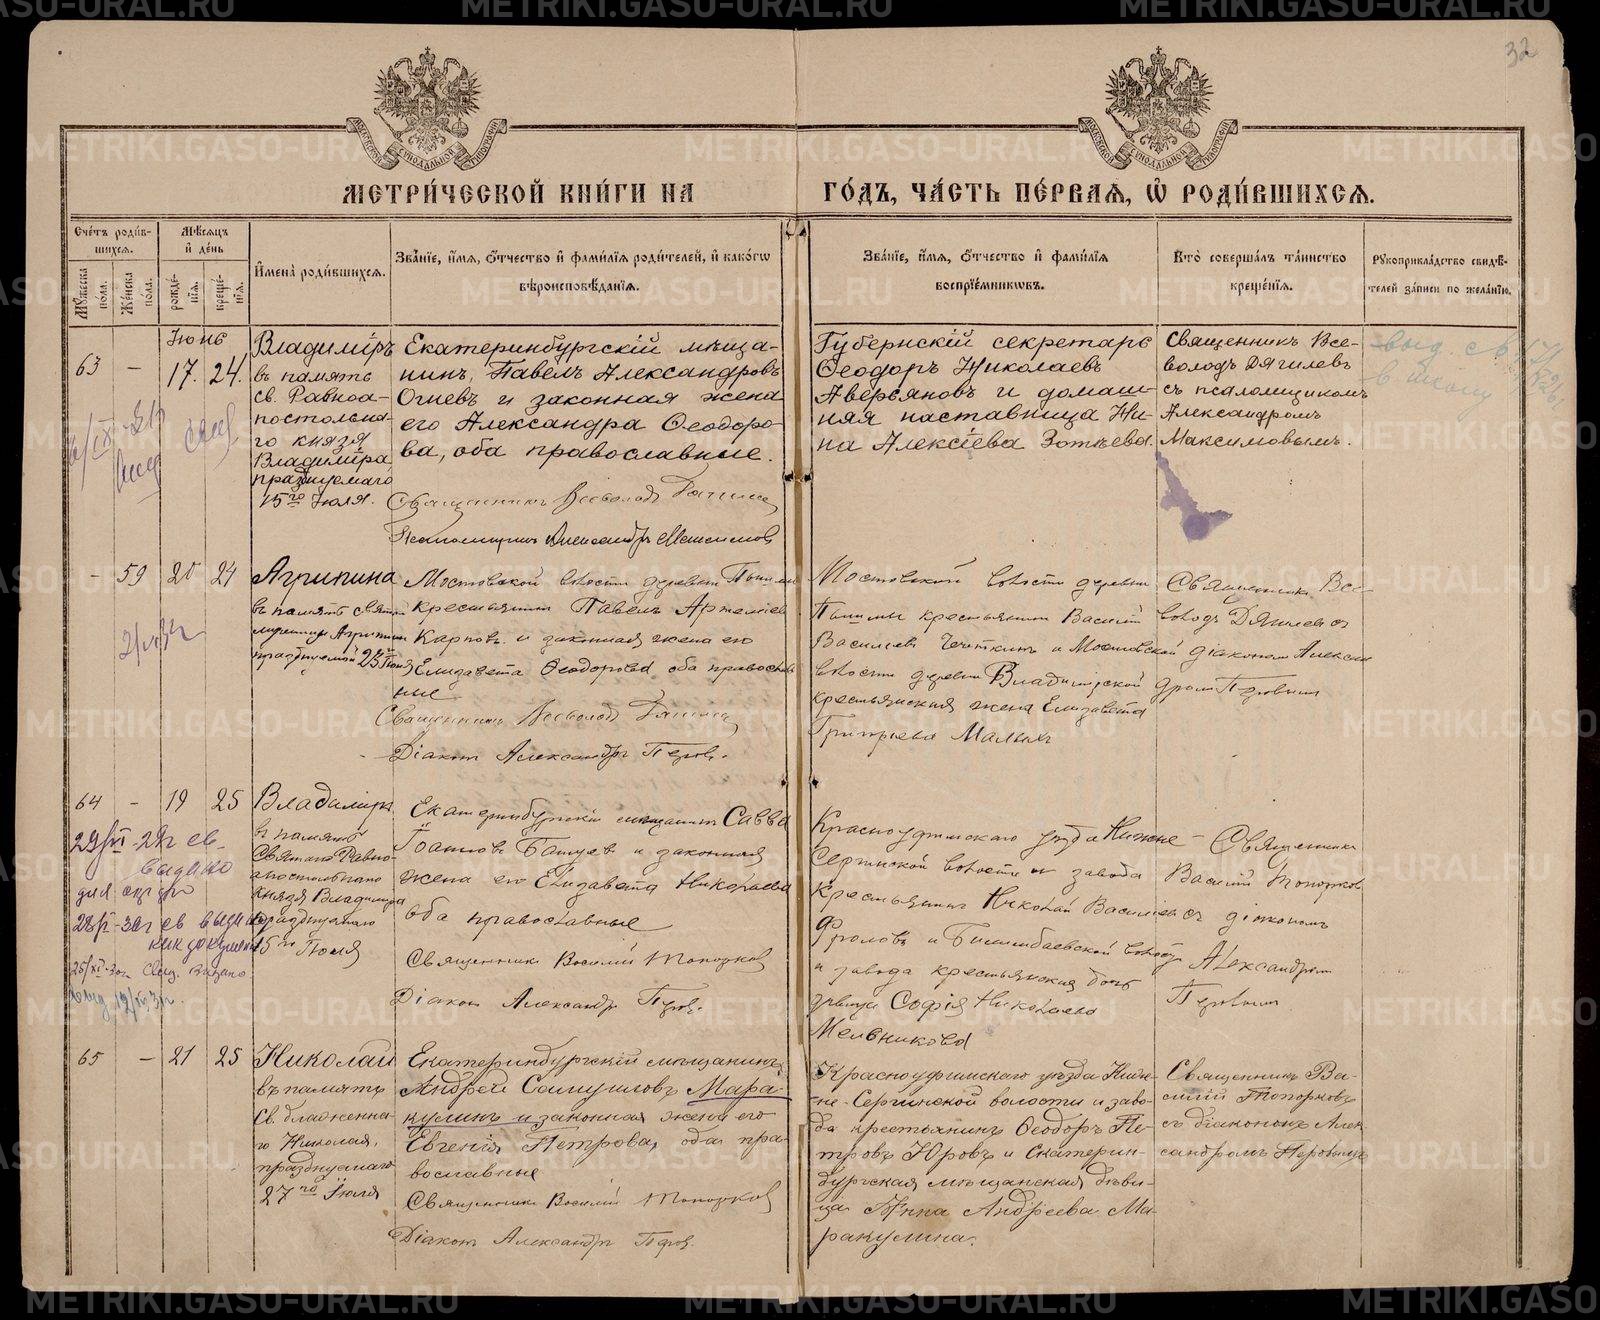 32
МЕТРИ́ЧЕСКОЙ КНИ́ГИ НА ГО́ДЪ, ЧА́СТЬ ПЕ́РВАѦ, Ѡ҆ РОДИ́ВШИХСѦ.
Сче́тъ роди́в-
шихсѧ.
Мꙋ́жеска пола.
Же́нска пола.
Мѣ́сѧцъ
и҆ де́нь
рожде́-
нїѧ.
креще́-
нїѧ.
И҆мена̀ роди́вшихсѧ.
Зва́нїе, и҆́мѧ, ѻ҆́тчество и҆ фами́лїѧ роди́телей, и҆ како́гѡ
вѣроисповѣ́данїѧ.
Зва́нїе, и҆́мѧ, ѻ҆́тчество и҆ фами́лїѧ
воспрїе́мникѡвъ.
Кто̀ соверша́лъ та́инство
креще́нїѧ.
Рꙋкоприкла́дство свидѣ́-
телей за́писи по жела́нїю.
Іюнь
63
–
17.
24.
Владиміръ
въ память
св. Равноа-
постольна-
го князя
Владиміра
празднуемаго
15го Іюля.
Екатеринбургскій мѣща-
нинъ, Павелъ Александровъ
Огневъ и законная жена
его Александра Ѳеодоро-
ва, оба православные.
Священникъ Всеволодъ Дягилевъ
Псаломщикъ Александръ Максимовъ
Губернскій секретарь
Ѳеодоръ Николаевъ
Аверьяновъ и домаш-
няя наставница Ни-
на Алексіева Зотѣева
Священникъ Все-
володъ Дягилевъ
съ псаломщикомъ
Александромъ
Максимовымъ.
–
59
20
24
Агрипина
въ память святой
мученицы Агрипины
празднуемой 23 Іюня
Мостовской волости деревни
крестьянинъ Павелъ Артеміевъ
Карповъ и законная жена его
Елизавета Ѳеодорова оба православ
ные
Священникъ Всеволодъ Дягилевъ
Діаконъ Александръ Перовъ.
Мостовской волости деревни
крестьянинъ Василій
Василіевъ и Мостовской
волости деревни Владимірской
крестьянская жена Елизавета
Григорьева Малыхъ
Священникъ Все-
володъ Дягилевъ съ
діакономъ Алексан
дромъ Перовымъ
64
–
19
25
Владиміръ
въ память
Святаго Равно-
апостольнаго
князя Владиміра
празднуемаго
15го Іюля
Екатеринбургскій мѣщанинъ Савва
Іоанновъ и законная
жена его Елизавета Николаева
оба православные
Священникъ Василій Топорковъ
Діаконъ Александръ Перовъ.
Красноуфимскаго уѣзда Нижне-
Сергинской волости и завода
крестьянинъ Николай Василіевъ
Фроловъ и Билимбаевской волости
и завода крестьянская дочь
дѣвица Софія Николаева
Мельникова
Священникъ
Василій Топорковъ
съ діакономъ
Александромъ
Перовымъ
65
–
21
25
Николай
въ память
Св. блаженна-
го Николая,
празднуемаго
27го Іюля
Екатеринбургскій мѣщанинъ
Андрей Самуиловъ Мара-
кулинъ и законная жена его
Евгенія Петрова, оба пра-
вославные
Священникъ Василій Топорковъ
Діаконъ Александръ Перовъ.
Красноуфимскаго уѣзда Ниж-
не-Сергинской волости и заво-
да крестьянинъ Ѳеодоръ Пе-
тровъ Юровъ и Екатерин-
бургская мѣщанская дѣви-
ца Анна Андреева Ма-
ракулина.
Священникъ Ва-
силій Топорковъ
съ діакономъ Алек
сандромъ Перовымъ
METRIKI.GASO-URAL.RU